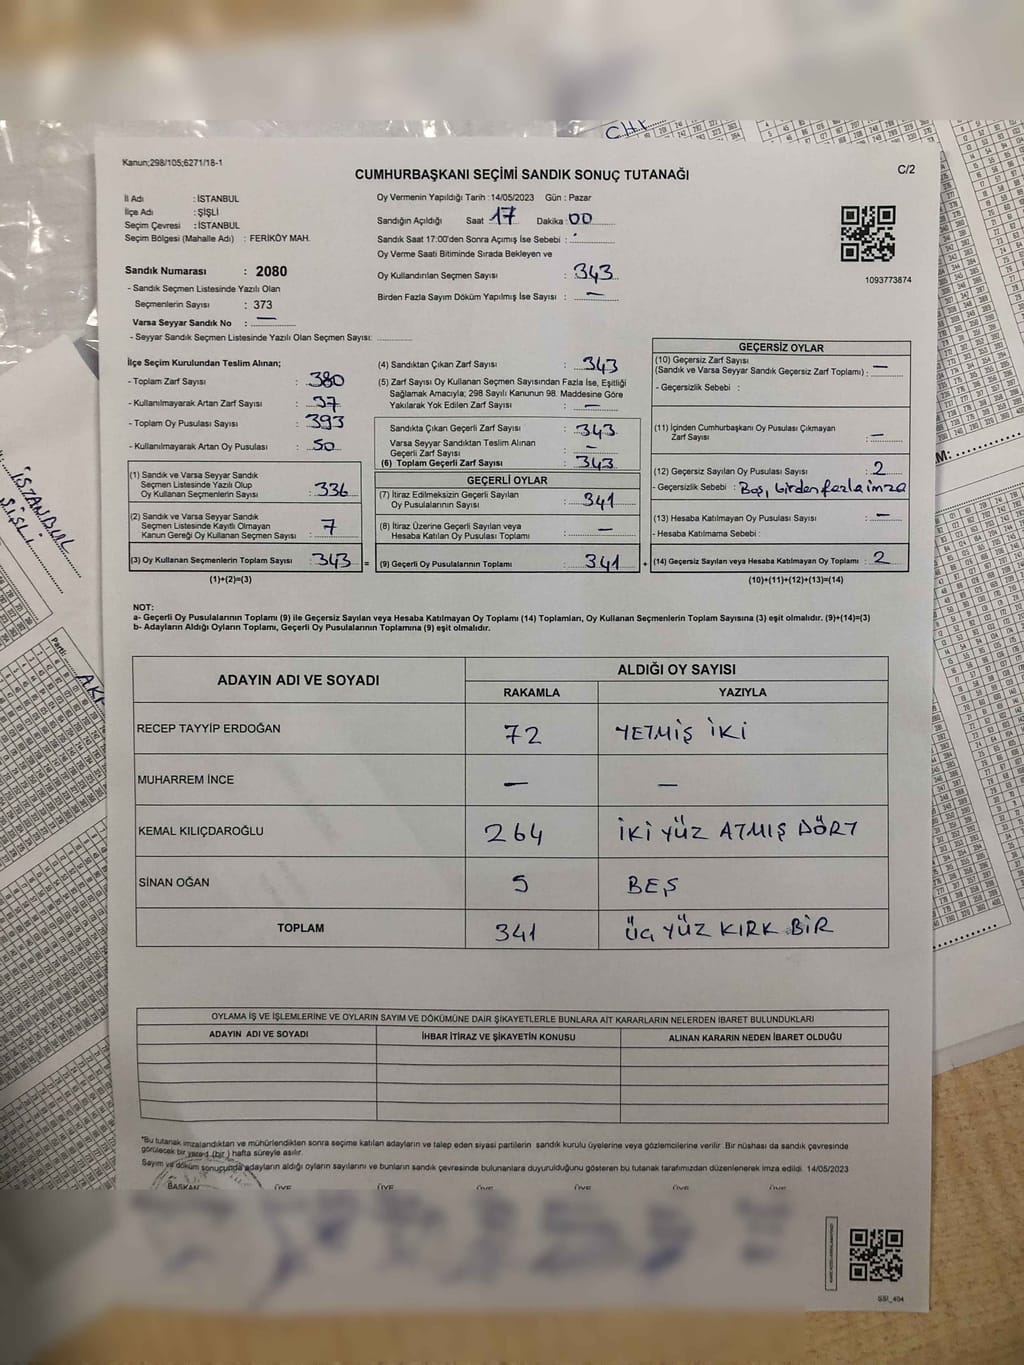 CHP
Kanun;298/105;6271/18-1
CUMHURBAŞKANI SEÇİMİ SANDIK SONUÇ TUTANAĞI
C/2
İl Adı : İSTANBUL
İlçe Adı : ŞİŞLİ
Seçim Çevresi : İSTANBUL
Seçim Bölgesi (Mahalle Adı) : FERİKÖY MAH.
Sandık Numarası : 2080
- Sandık Seçmen Listesinde Yazılı Olan
Seçmenlerin Sayısı : 373
Varsa Seyyar Sandık No : —
- Seyyar Sandık Seçmen Listesinde Yazılı Olan Seçmen Sayısı:
Oy Vermenin Yapıldığı Tarih : 14/05/2023 Gün : Pazar
Sandığın Açıldığı Saat 17 Dakika 00
Sandık Saat 17:00'den Sonra Açımış İse Sebebi :
Oy Verme Saati Bitiminde Sırada Bekleyen ve
Oy Kullandırılan Seçmen Sayısı : 343
Birden Fazla Sayım Döküm Yapılmış İse Sayısı : —
1093773874
İlçe Seçim Kurulundan Teslim Alınan;
- Toplam Zarf Sayısı : 380
- Kullanılmayarak Artan Zarf Sayısı : 37
- Toplam Oy Pusulası Sayısı : 393
- Kullanılmayarak Artan Oy Pusulası : 50
(1) Sandık ve Varsa Seyyar Sandık
Seçmen Listesinde Yazılı Olup
Oy Kullanan Seçmenlerin Sayısı : 336
(2) Sandık ve Varsa Seyyar Sandık
Seçmen Listesinde Kayıtlı Olmayan
Kanun Gereği Oy Kullanan Seçmen Sayısı : 7
(3) Oy Kullanan Seçmenlerin Toplam Sayısı : 343
(1)+(2)=(3)
=
(4) Sandıktan Çıkan Zarf Sayısı : 343
(5) Zarf Sayısı Oy Kullanan Seçmen Sayısından Fazla İse, Eşitliği
Sağlamak Amacıyla; 298 Sayılı Kanunun 98. Maddesine Göre
Yakılarak Yok Edilen Zarf Sayısı : —
Sandıkta Çıkan Geçerli Zarf Sayısı : 343
Varsa Seyyar Sandıktan Teslim Alınan
Geçerli Zarf Sayısı : —
(6) Toplam Geçerli Zarf Sayısı : 343
GEÇERLİ OYLAR
(7) İtiraz Edilmeksizin Geçerli Sayılan
Oy Pusulalarının Sayısı : 341
(8) İtiraz Üzerine Geçerli Sayılan veya
Hesaba Katılan Oy Pusulası Toplamı : —
(9) Geçerli Oy Pusulalarının Toplamı : 341
+
GEÇERSİZ OYLAR
(10) Geçersiz Zarf Sayısı
(Sandık ve Varsa Seyyar Sandık Geçersiz Zarf Toplamı) : —
- Geçersizlik Sebebi :
(11) İçinden Cumhurbaşkanı Oy Pusulası Çıkmayan
Zarf Sayısı : —
(12) Geçersiz Sayılan Oy Pusulası Sayısı : 2
- Geçersizlik Sebebi : Boş, birden fazla imza
(13) Hesaba Katılmayan Oy Pusulası Sayısı : —
- Hesaba Katılmama Sebebi :
(14) Geçersiz Sayılan veya Hesaba Katılmayan Oy Toplamı : 2
(10)+(11)+(12)+(13)=(14)
NOT:
a- Geçerli Oy Pusulalarının Toplamı (9) ile Geçersiz Sayılan veya Hesaba Katılmayan Oy Toplamı (14) Toplamları, Oy Kullanan Seçmenlerin Toplam Sayısına (3) eşit olmalıdır. (9)+(14)=(3)
b- Adayların Aldığı Oyların Toplamı, Geçerli Oy Pusulalarının Toplamına (9) eşit olmalıdır.
ADAYIN ADI VE SOYADI
ALDIĞI OY SAYISI
RAKAMLA YAZIYLA
RECEP TAYYİP ERDOĞAN 72 YETMİŞ İKİ
MUHARREM İNCE — —
KEMAL KILIÇDAROĞLU 264 İKİ YÜZ ATMIŞ DÖRT
SİNAN OĞAN 5 BEŞ
TOPLAM 341 ÜÇ YÜZ KIRK BİR
OYLAMA İŞ VE İŞLEMLERİNE VE OYLARIN SAYIM VE DÖKÜMÜNE DAİR ŞİKAYETLERLE BUNLARA AİT KARARLARIN NELERDEN İBARET BULUNDUKLARI
ADAYIN ADI VE SOYADI İHBAR İTİRAZ VE ŞİKAYETİN KONUSU ALINAN KARARIN NEDEN İBARET OLDUĞU
*Bu tutanak imzalandıktan ve mühürlendikten sonra seçime katılan adayların ve talep eden siyasi partilerin sandık kurulu üyelerine veya gözlemcilerine verilir. Bir nüshası da sandık çevresinde
görülecek bir yere 1 (bir) hafta süreyle asılır.
Sayım ve döküm sonucunda adayların aldığı oyların sayılarını ve bunların sandık çevresinde bulunanlara duyurulduğunu gösteren bu tutanak tarafımızdan düzenlenerek imza edildi. 14/05/2023
BAŞKAN ÜYE ÜYE ÜYE ÜYE ÜYE ÜYE
İSTANBUL
ŞİŞLİ
Parti:
AKP